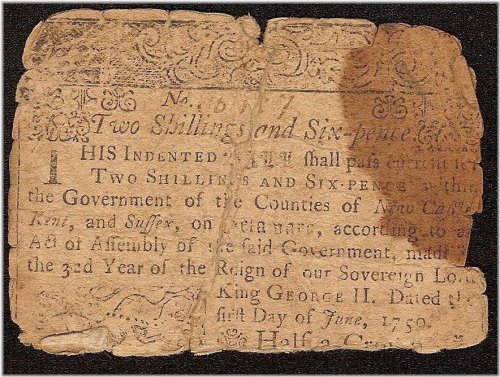 No.
Two Shillings and Six-pence.
THIS INDENTED BILL shall pass current for
TWO SHILLINGS AND SIX-PENCE within
the Government of the Counties of New Castle
Kent, and Sussex, on Delaware, according to an
Act of Assembly of the said Government, made
the 32d Year of the Reign of our Sovereign Lord
King GEORGE II. Dated the
first Day of June, 1759.
Half a Crown